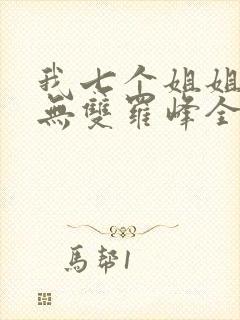 我七个姐姐
無雙羅峰全
馬帮1